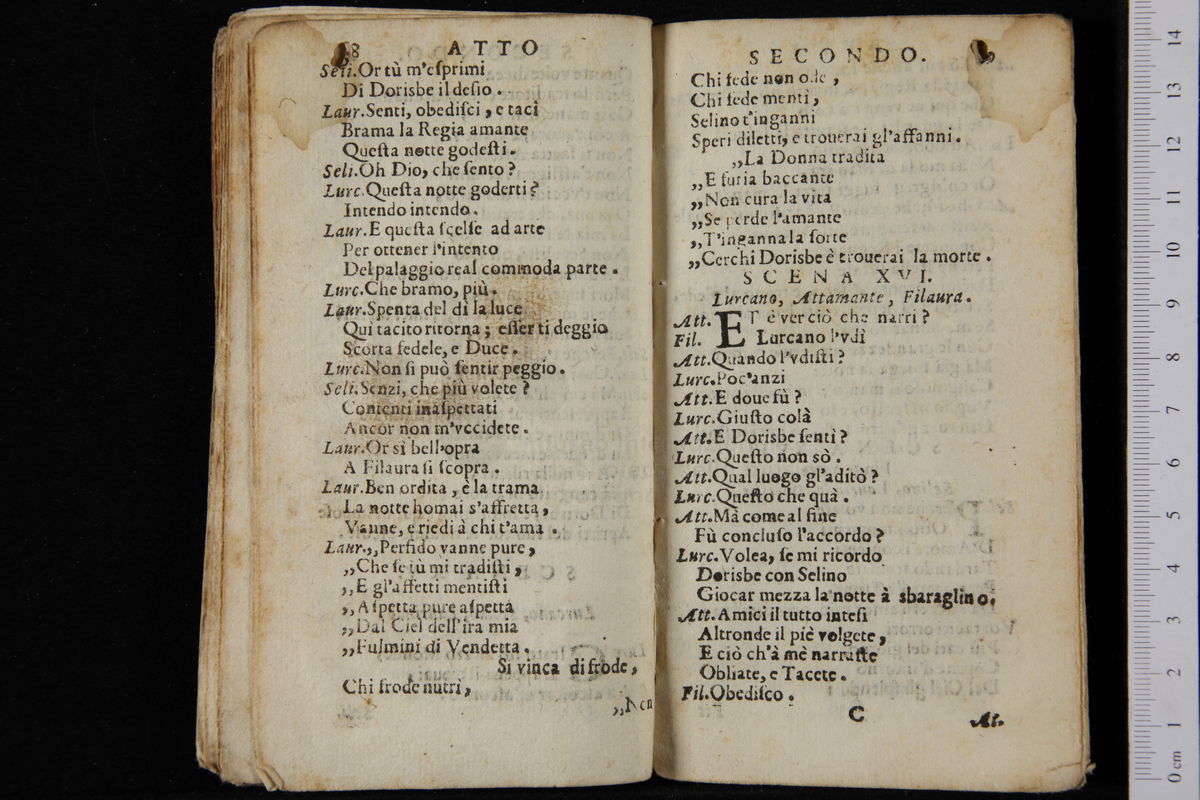 8 ATTO
Seli.Or tù m'eſprimi
Di Dorisbe il deſio.
Laur.Senti, obediſci, e taci
Brama la Regia amante
Queſta notte godeſti.
Seli.Oh Dio, che ſento?
Lurc.Queſta notte goderti?
Intendo intendo.
Laur.E queſta ſcelſe ad arte
Per ottener l'intento
Del palaggio real commoda parte.
Lurc.Che bramo, più.
Laur.Spenta del dì la luce
Qui tacito ritorna; eſſer ti deggio
Scorta fedele, e Duce.
Lurc.Non ſi può ſentir peggio.
Seli.Senzi, che più volete?
Contenti inaſpettati
Ancor non m'vccidete.
Laur.Or sì bell'opra
A Filaura ſi ſcopra.
Laur.Ben ordita, è la trama
La notte homai s'affretta,
Vanne, e riedi à chi t'ama.
Laur.,,Perfido vanne pure,
,,Che ſe tù mi tradiſti,
,,E gl'affetti mentiſti
,,Aſpetta pure aſpetta
,,Dal Ciel dell'ira mia
,,Fulmini di Vendetta.
Si vinca di frode,
Chi frode nutrì,
,,Non
SECONDO.
Chi fede non ode,
Chi fede mentì,
Selino t'inganni
Speri diletti, e trouerai gl'affanni.
,,La Donna tradita
,,E furia baccante
,,Non cura la vita
,,Se perde l'amante
,,T'inganna la ſorte
,,Cerchi Dorisbe è trouerai la morte.
SCENA XVI.
Lurcano, Attamante, Filaura.
Att. ET è ver ciò che narri?
Fil. Lurcano l'vdì
Att.Quando l'vdiſti?
Lurc.Poc'anzi
Att.E doue fù?
Lurc.Giuſto colà
Att.E Dorisbe ſentì?
Lurc.Queſto non sò.
Att.Qual luogo gl'aditò?
Lurc.Queſto che quà.
Att.Mà come al fine
Fù concluſo l'accordo?
Lurc.Volea, ſe mi ricordo
Dorisbe con Selino
Giocar mezza la notte à sbaraglino.
Att.Amici il tutto inteſi
Altronde il piè volgete,
E ciò ch'à mè narraſte
Obliate, e Tacete.
Fil.Obediſco.
C
At.